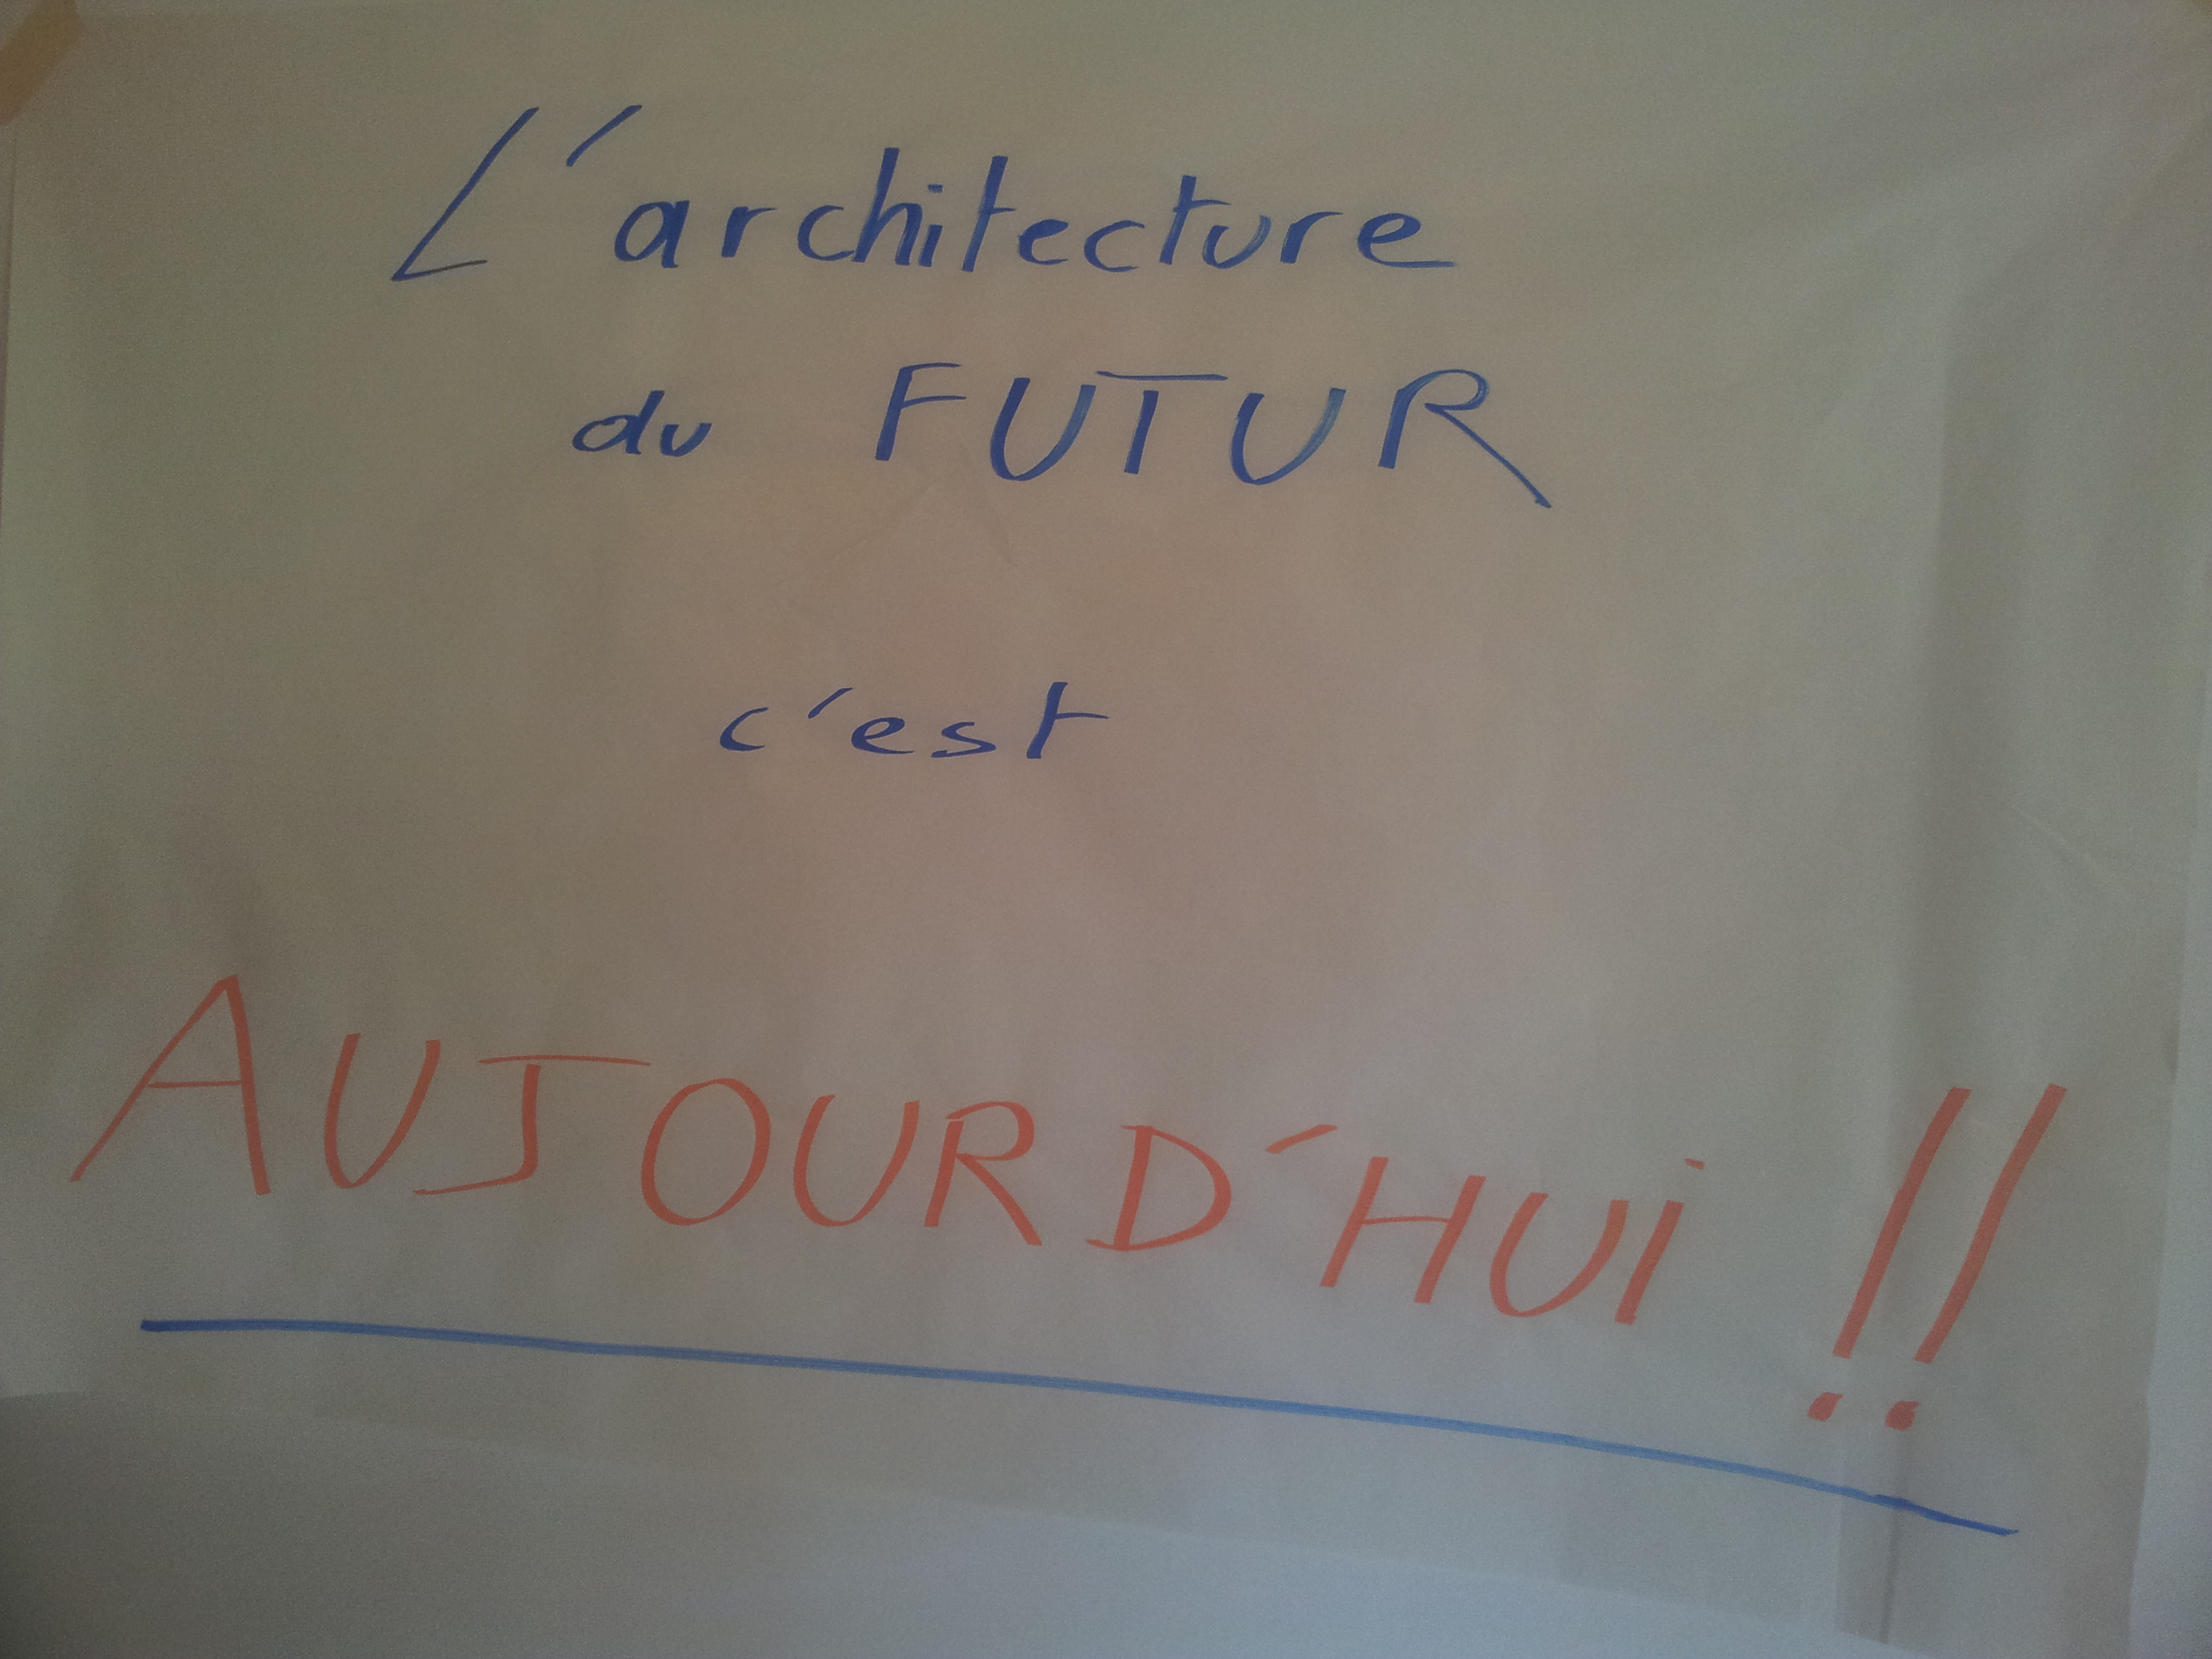 L'architecture
du FUTUR
c'est
AUJOURD'HUi !!